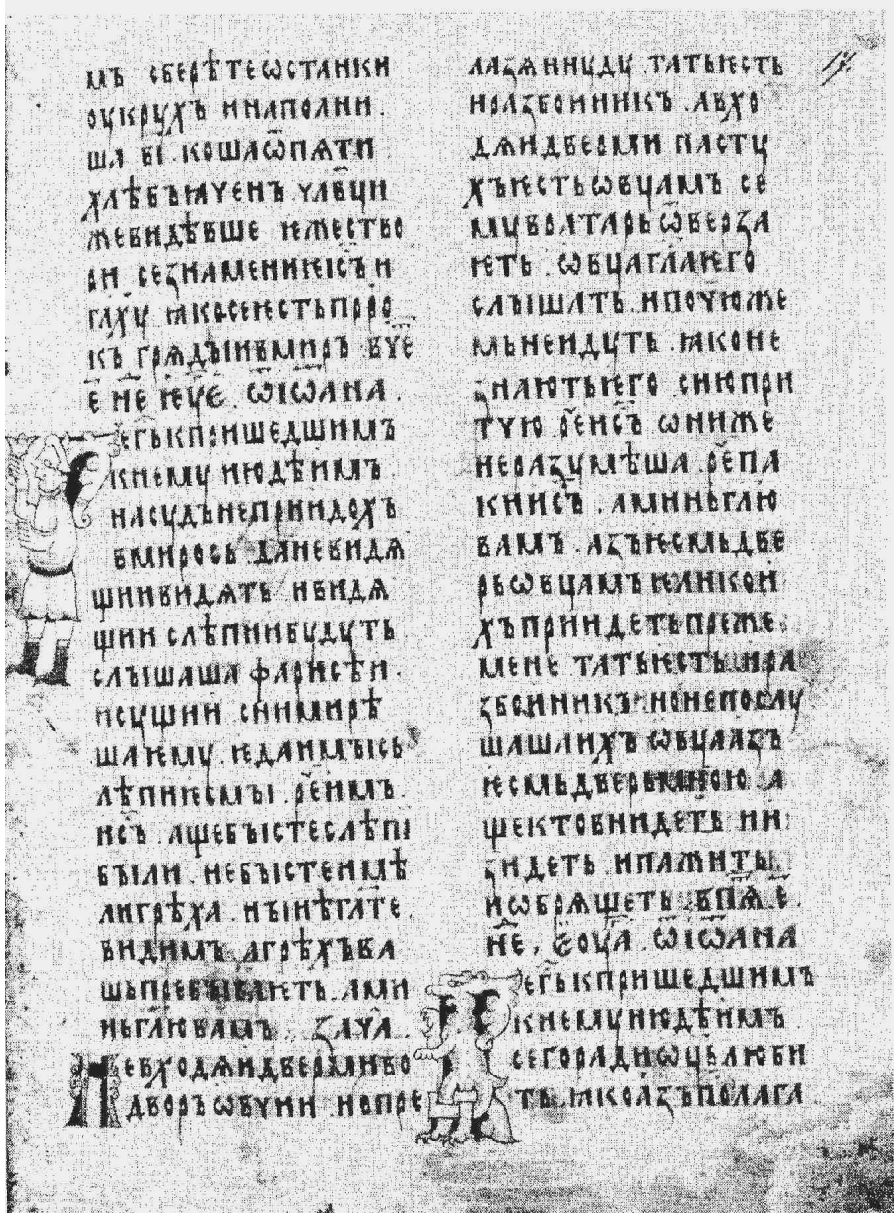 мъ сберѣте ѡстанки
оукрухъ и наполни
ша ві кошаѿпѧти
хлѣбъ ꙗченъ члвци
же видѣвше ѥже ство
ри се знамениѥ іс҃ъ и
гл҃ху ꙗко се ѥсть проро
къ грѧдыи в миръ в҃ че
е҃ не҃ ѥѵ҃є ѿ іѡана
Рече г҃ь к пришедшимъ
к нему июдѣимъ
на судъ не приидохъ
в миро сь да не видѧ
щии видѧть и видѧ
щии слѣпии будуть
слышаша фарисѣи
и сущии с нимь и рѣ
ша ѥму ѥда и мы сь
лѣпи ѥсмы рч҃е имъ
ис҃ъ аще бысте слѣпі
были не бысте имѣ
ли грѣха нынѣ гл҃те
видимъ а грѣхъ ва
шь пребываѥть ами
нь гл҃ю вамъ заѵ҃а
Не входѧи двермиво
дворъ ѡвчии но пре
лазѧ инуду тать ѥсть
и разбоиникъ а вхо
дѧи двер҃ми пасту
хъ ѥсть ѡвцамъ се
му вратарь ѿверза
ѥть ѡвца гла҃ ѥго
слышать и по чюже
мь не идуть ꙗко не
знають ѥго сию при
тчю рч҃е ис҃ъ ѡни же
не разумѣша рч҃е па
кы ис҃ъ аминь гл҃ю
вамъ азъ ѥсмь две
рь ѡвцамъ ѥлико и
хъ приидеть преже
мене тать ѥсть и ра
збоиникъ но не послу
шаша ихъ ѡвца азъ
ѥсмь дверь мною а
ще кто внидеть и и
зидеть и пажить
и ѡбрѧщеть в пѧ҃ е҃
не҃ ѥѵ҃а ѿ іѡана
Рече г҃ь к пришедшимъ
к нему июдѣимъ
сего ради ѡц҃ь люби
ть ꙗко азъ полага
17.